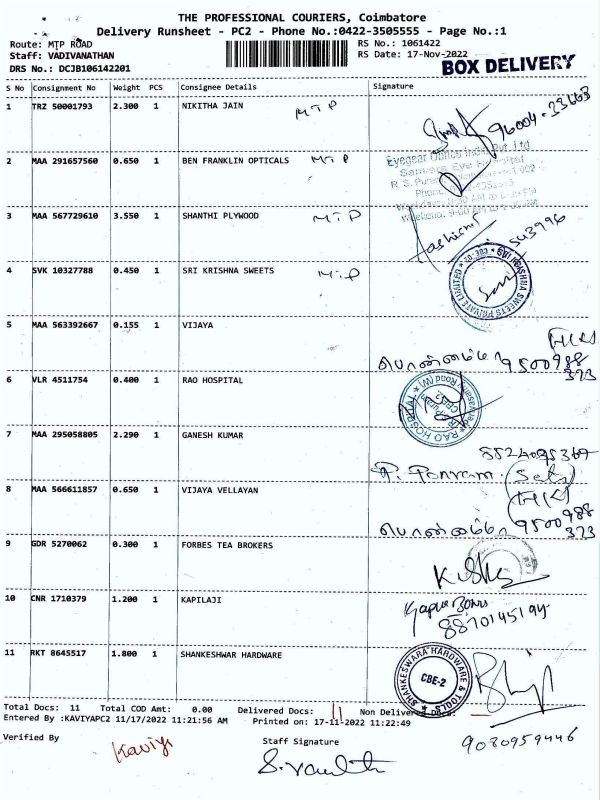 THE PROFESSIONAL COURIERS, Coimbatore
Delivery Runsheet - PC2 - Phone No.:0422-3505555 - Page No.:1
Route: MTP ROAD
Staff: VADIVANATHAN
DRS No.: DCJB106142201
RS No.: 1061422
RS Date: 17-Nov-2022
BOX DELIVERY
S No Consignment No Weight PCS Consignee Details Signature
1 TRZ 50001793 2.300 1 NIKITHA JAIN MTP
96004-33663
2 MAA 291657560 0.650 1 BEN FRANKLIN OPTICALS MTP
Eyegear Optics India Pvt. Ltd
Sankara Eye Hospital
3 MAA 567729610 3.550 1 SHANTHI PLYWOOD MTP
543996
4 SVK 10327788 0.450 1 SRI KRISHNA SWEETS MTP
SRI KRISHNA SWEETS PRIVATE LIMITED
5 MAA 563392667 0.155 1 VIJAYA
9500988
373
6 VLR 4511754 0.400 1 RAO HOSPITAL
RAO HOSPITAL
7 MAA 295058805 2.290 1 GANESH KUMAR
8524095369
8 MAA 566611857 0.650 1 VIJAYA VELLAYAN
9500988
373
9 GDR 5270062 0.300 1 FORBES TEA BROKERS
10 CNR 1710379 1.200 1 KAPILAJI
8870145194
11 RKT 8645517 1.800 1 SHANKESHWAR HARDWARE
SHANKESWARA HARDWARE & TOOLS
CBE-2
Total Docs: 11 Total COD Amt: 0.00 Delivered Docs: 11 Non Delivered Docs:
Entered By :KAVIYAPC2 11/17/2022 11:21:56 AM Printed on: 17-11-2022 11:22:49
Verified By Kaviya
Staff Signature
9080959446